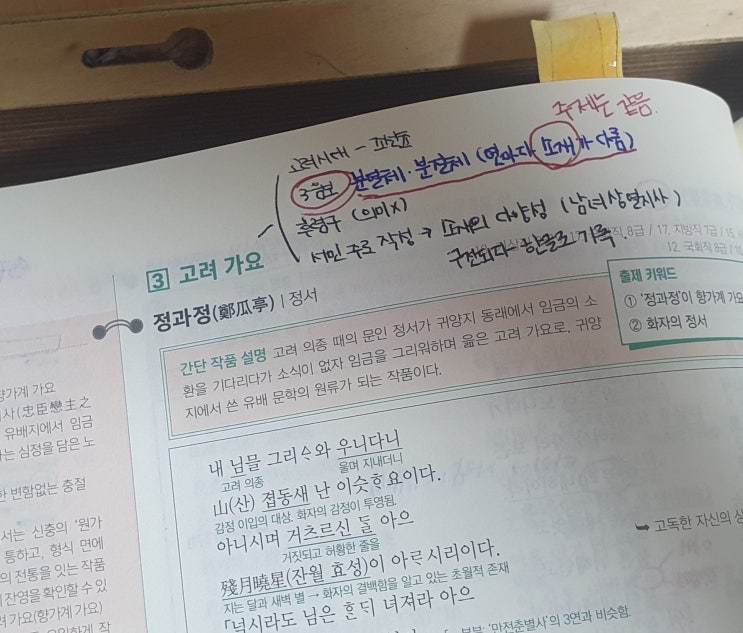 주제는 같음.
고려시대 -
3음보 분연체·분절체 (연마다 소재가 다름)
후렴구 (의미X)
서민 주로 작성 → 소재의 다양성 (남녀상열지사)
구전되다 한글로 기록.
8급 / 17. 지방직 7급 / 15.
12. 국회직 8급 / 10
3 고려 가요
정과정(鄭瓜亭) | 정서
출제 키워드
① '정과정'이 향가계 가요
② 화자의 정서
간단 작품 설명 고려 의종 때의 문인 정서가 귀양지 동래에서 임금의 소
환을 기다리다가 소식이 없자 임금을 그리워하며 읊은 고려 가요로, 귀양
지에서 쓴 유배 문학의 원류가 되는 작품이다.
향가계 가요
사(忠臣戀主之
유배지에서 임금
하는 심정을 담은 노
한 변함없는 충절
서는 신충의 '원가
통하고, 형식 면에
의 전통을 잇는 작품
잔영을 확인할 수 있
려 가요(향가계 가요)
내 님믈 그리ᅀᆞ와 우니다니
고려 의종 울며 지내더니
山(산) 졉동새 난 이슷ᄒᆞ요이다.
감정 이입의 대상. 화자의 감정이 투영됨.
아니시며 거츠르신 ᄃᆞᆯ 아으
거짓되고 허황한 줄을
➥ 고독한 자신의 상
殘月曉星(잔월 효성)이 아ᄅᆞ시리이다.
지는 달과 새벽 별 → 화자의 결백함을 알고 있는 초월적 존재
「넉시라도 님은 ᄒᆞᆫᄃᆡ 녀져라 아으
부분: '만전춘별사'의 3연과 비슷함.